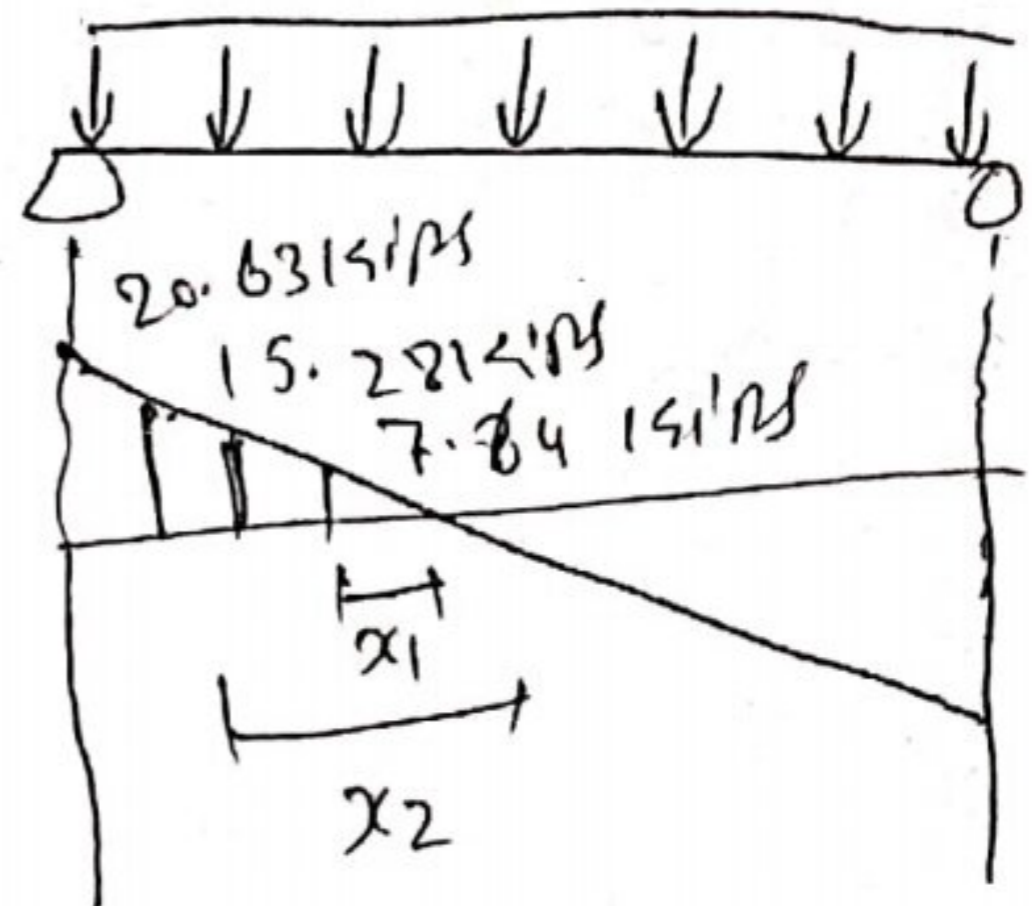 20.63 kips
15.28 kips
7.64 kips
x1
x2